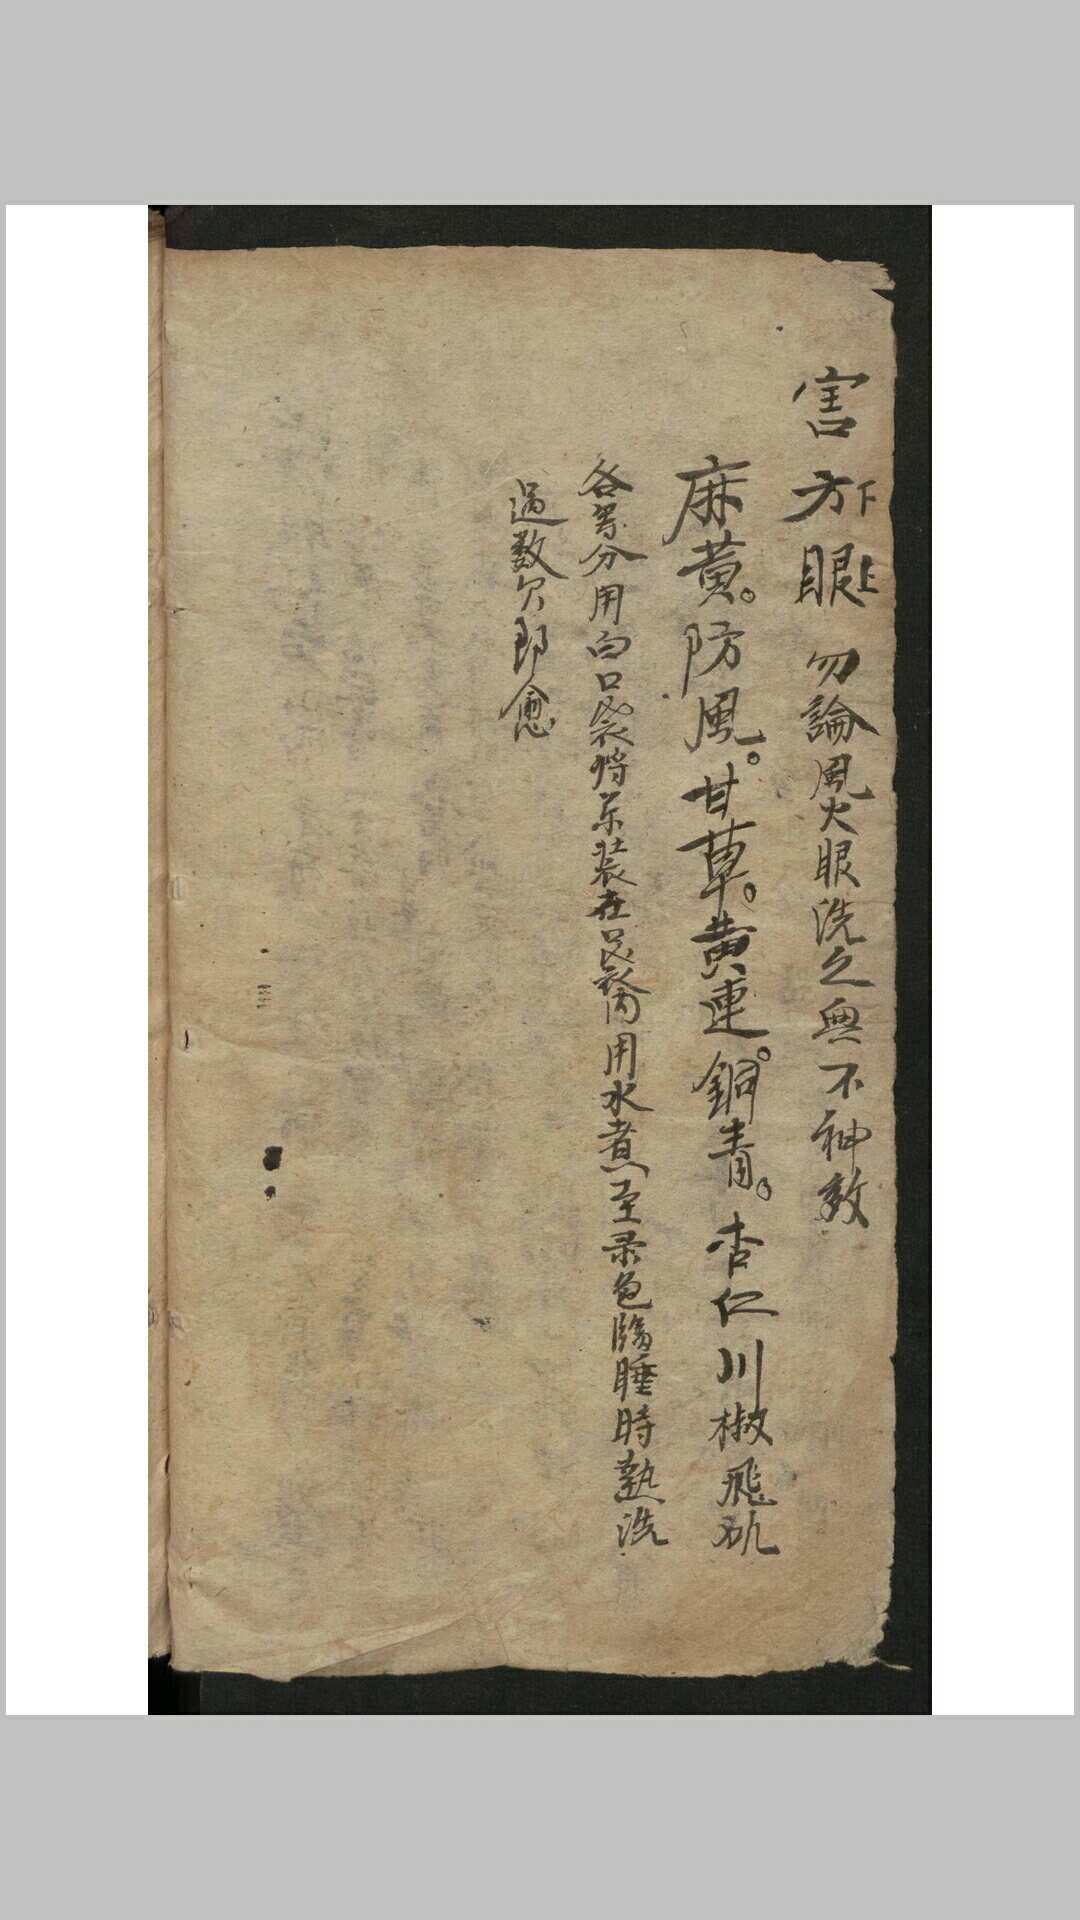 害方下眼上勿論風火眼洗之無不神效
麻黄。防風。甘草。黄連。銅青。杏仁川椒飛矾
各等分用白口袋將药装在口袋内用水煮至录色臨睡時熟洗
過数欠即愈